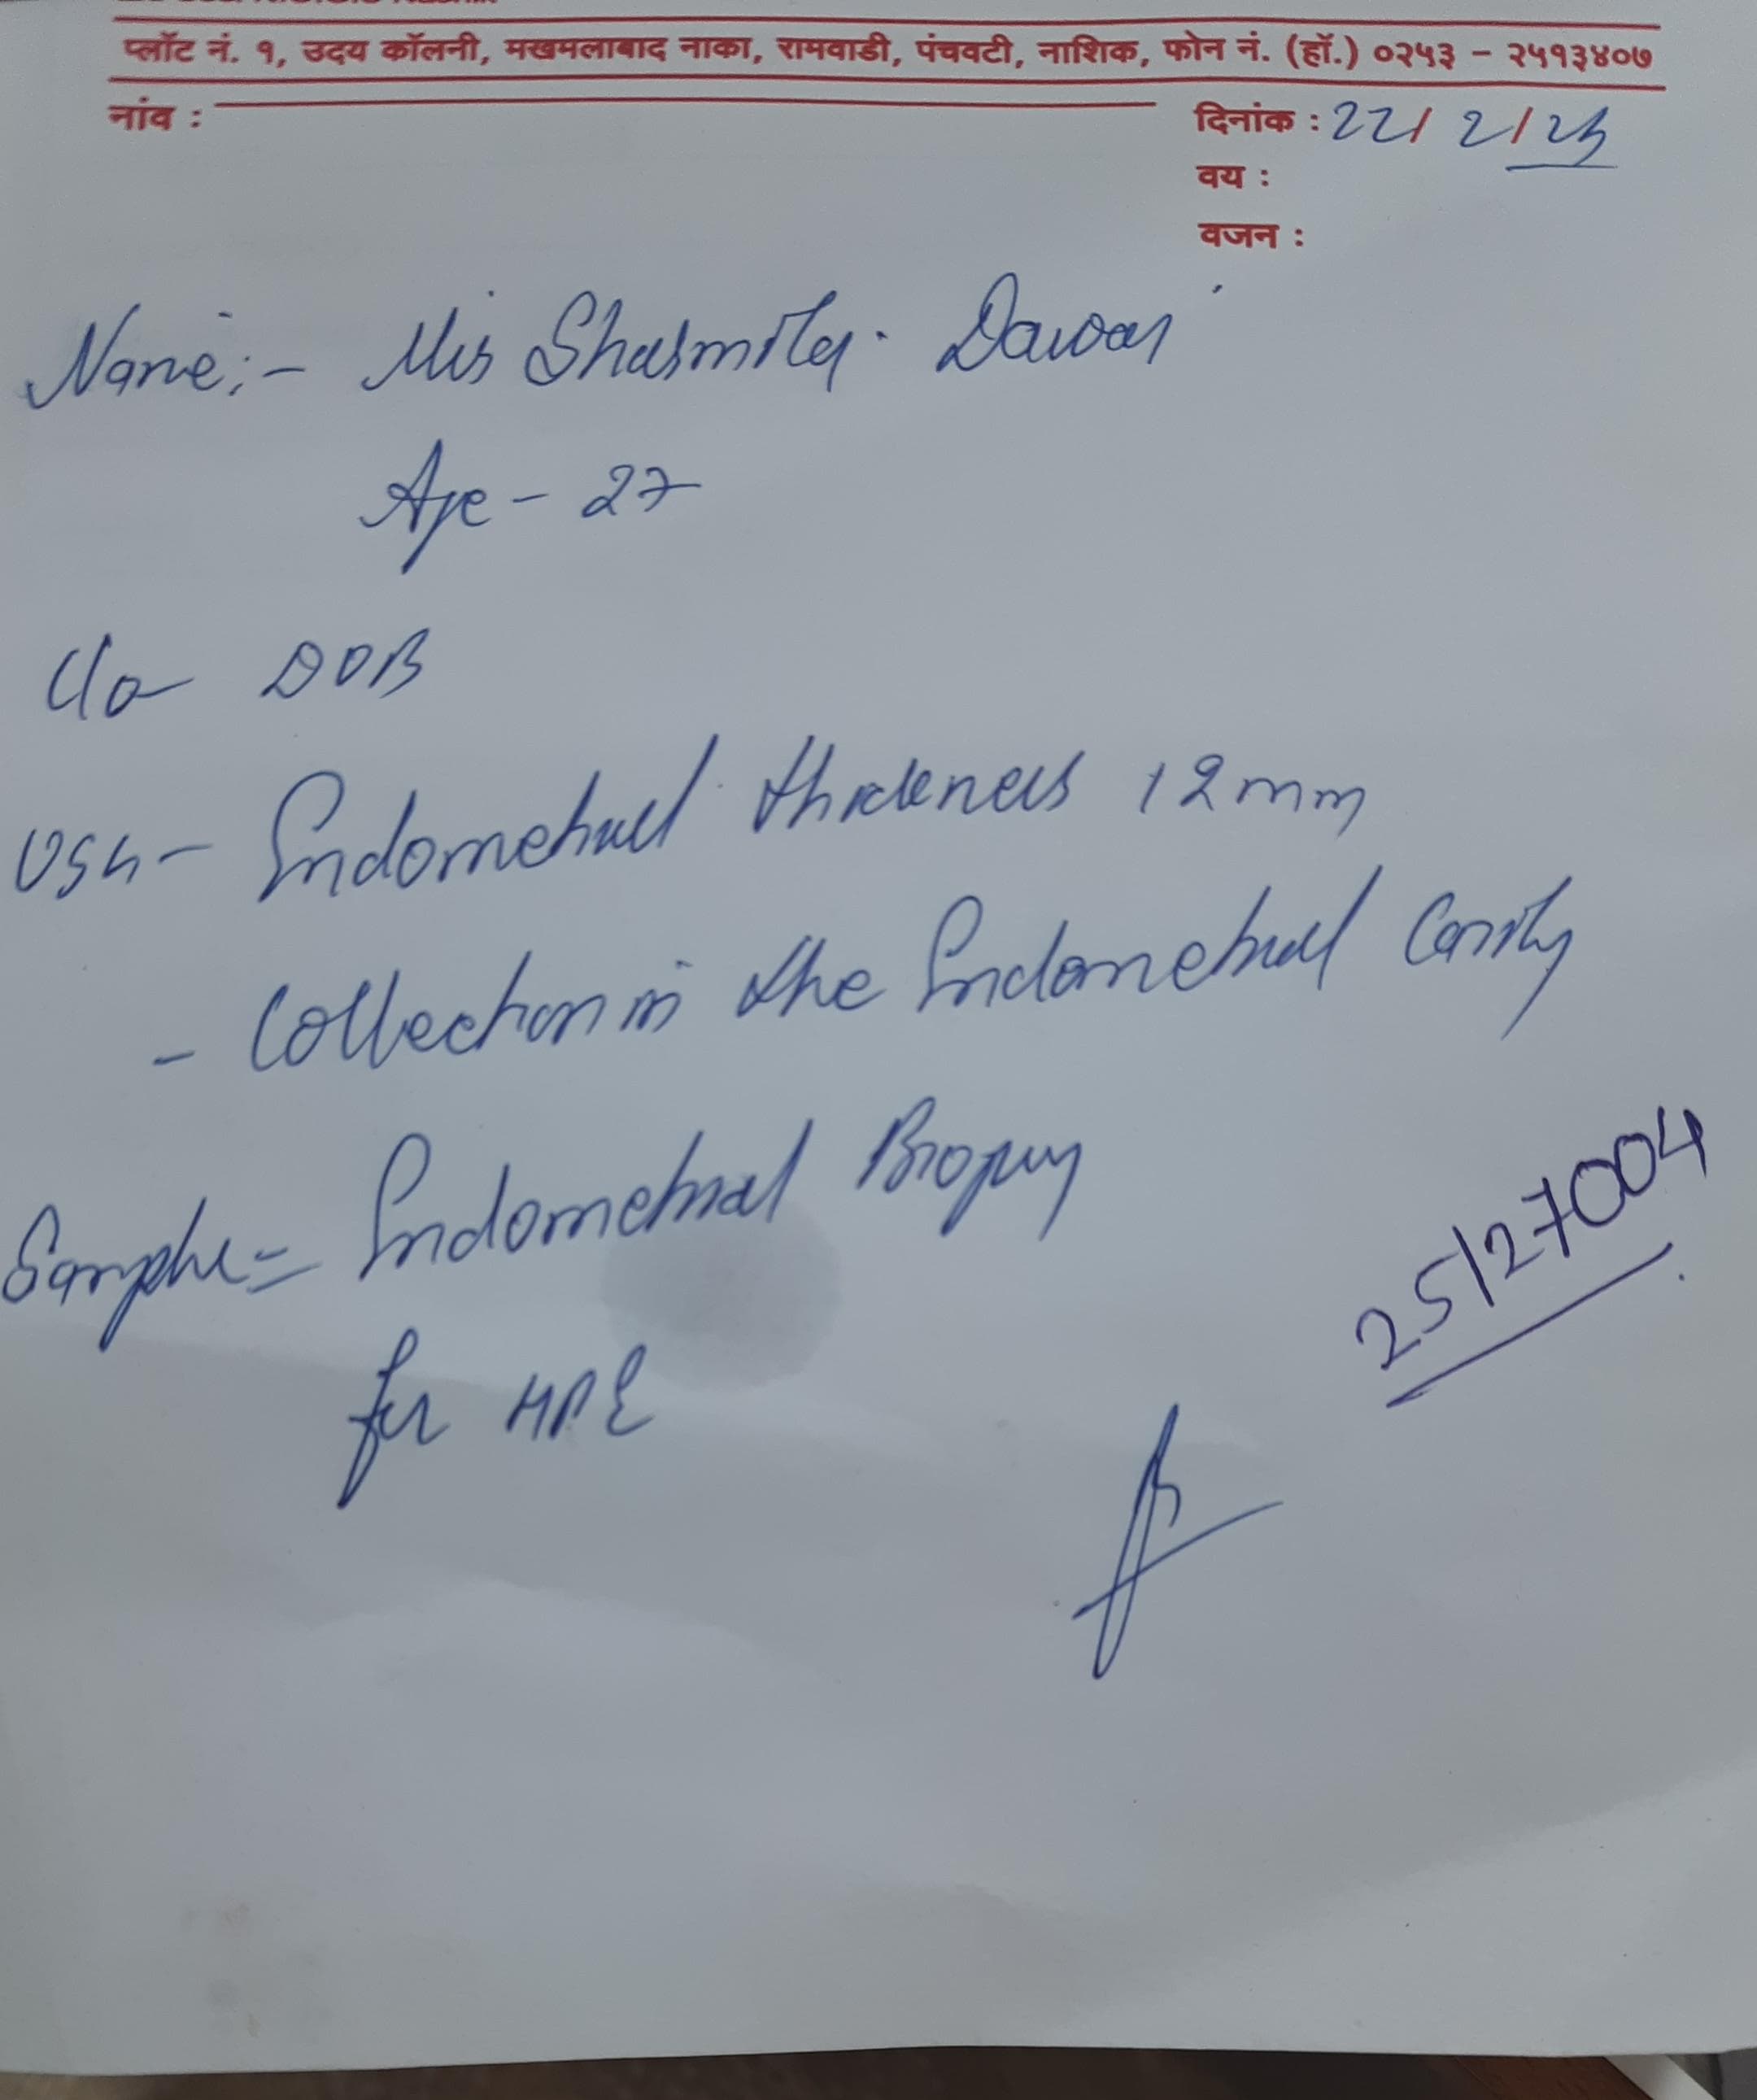 प्लॉट नं. १, उदय कॉलनी, मखमलाबाद नाका, रामवाडी, पंचवटी, नाशिक, फोन नं. (हॉ.) ०२५३ – २५१३४०७
नांव :
दिनांक : 22/2/25
वय :
वजन :
Name:- Mrs Sharmila. Dawar
Age - 27
C/o DOB
USG - Endometrial thickness 12mm
- Collection in the Endometrial Cavity
Sample = Endometrial Biopsy
for HPE
25/27004